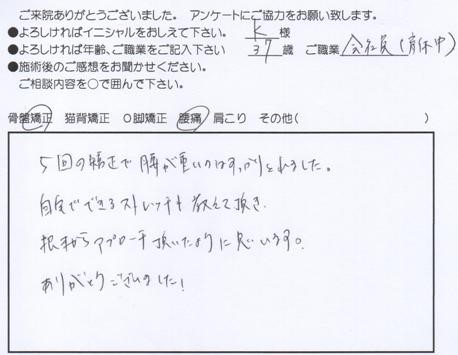 ご来院ありがとうございました。 アンケートにご協力をお願い致します。
●よろしければイニシャルをおしえて下さい。 K 様
●よろしければ年齢、ご職業をご記入下さい 37 歳 ご職業 会社員(育休中)
●施術後のご感想をお聞かせください。
ご相談内容を○で囲んで下さい。
骨盤矯正 猫背矯正 O脚矯正 腰痛 肩こり その他( )
5回の矯正で腰が重いのはすっかりとれました。
自宅でできるストレッチも教えて頂き
根本からアプローチ頂いたように思います。
ありがとうございました!